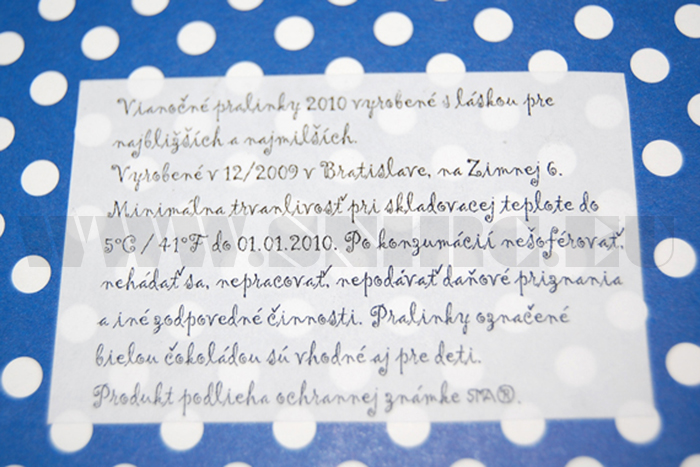 Vianočné pralinky 2010 vyrobené s láskou pre
najbližších a najmilších.
Vyrobené v 12/2009 v Bratislave, na Zimnej 6.
Minimálna trvanlivosť pri skladovacej teplote do
5°C / 41°F do 01.01.2010. Po konzumácií nešoférovať,
nehádať sa, nepracovať, nepodávať daňové priznania
a iné zodpovedné činnosti. Pralinky označené
bielou čokoládou sú vhodné aj pre deti.
Produkt podlieha ochrannej známke ®.